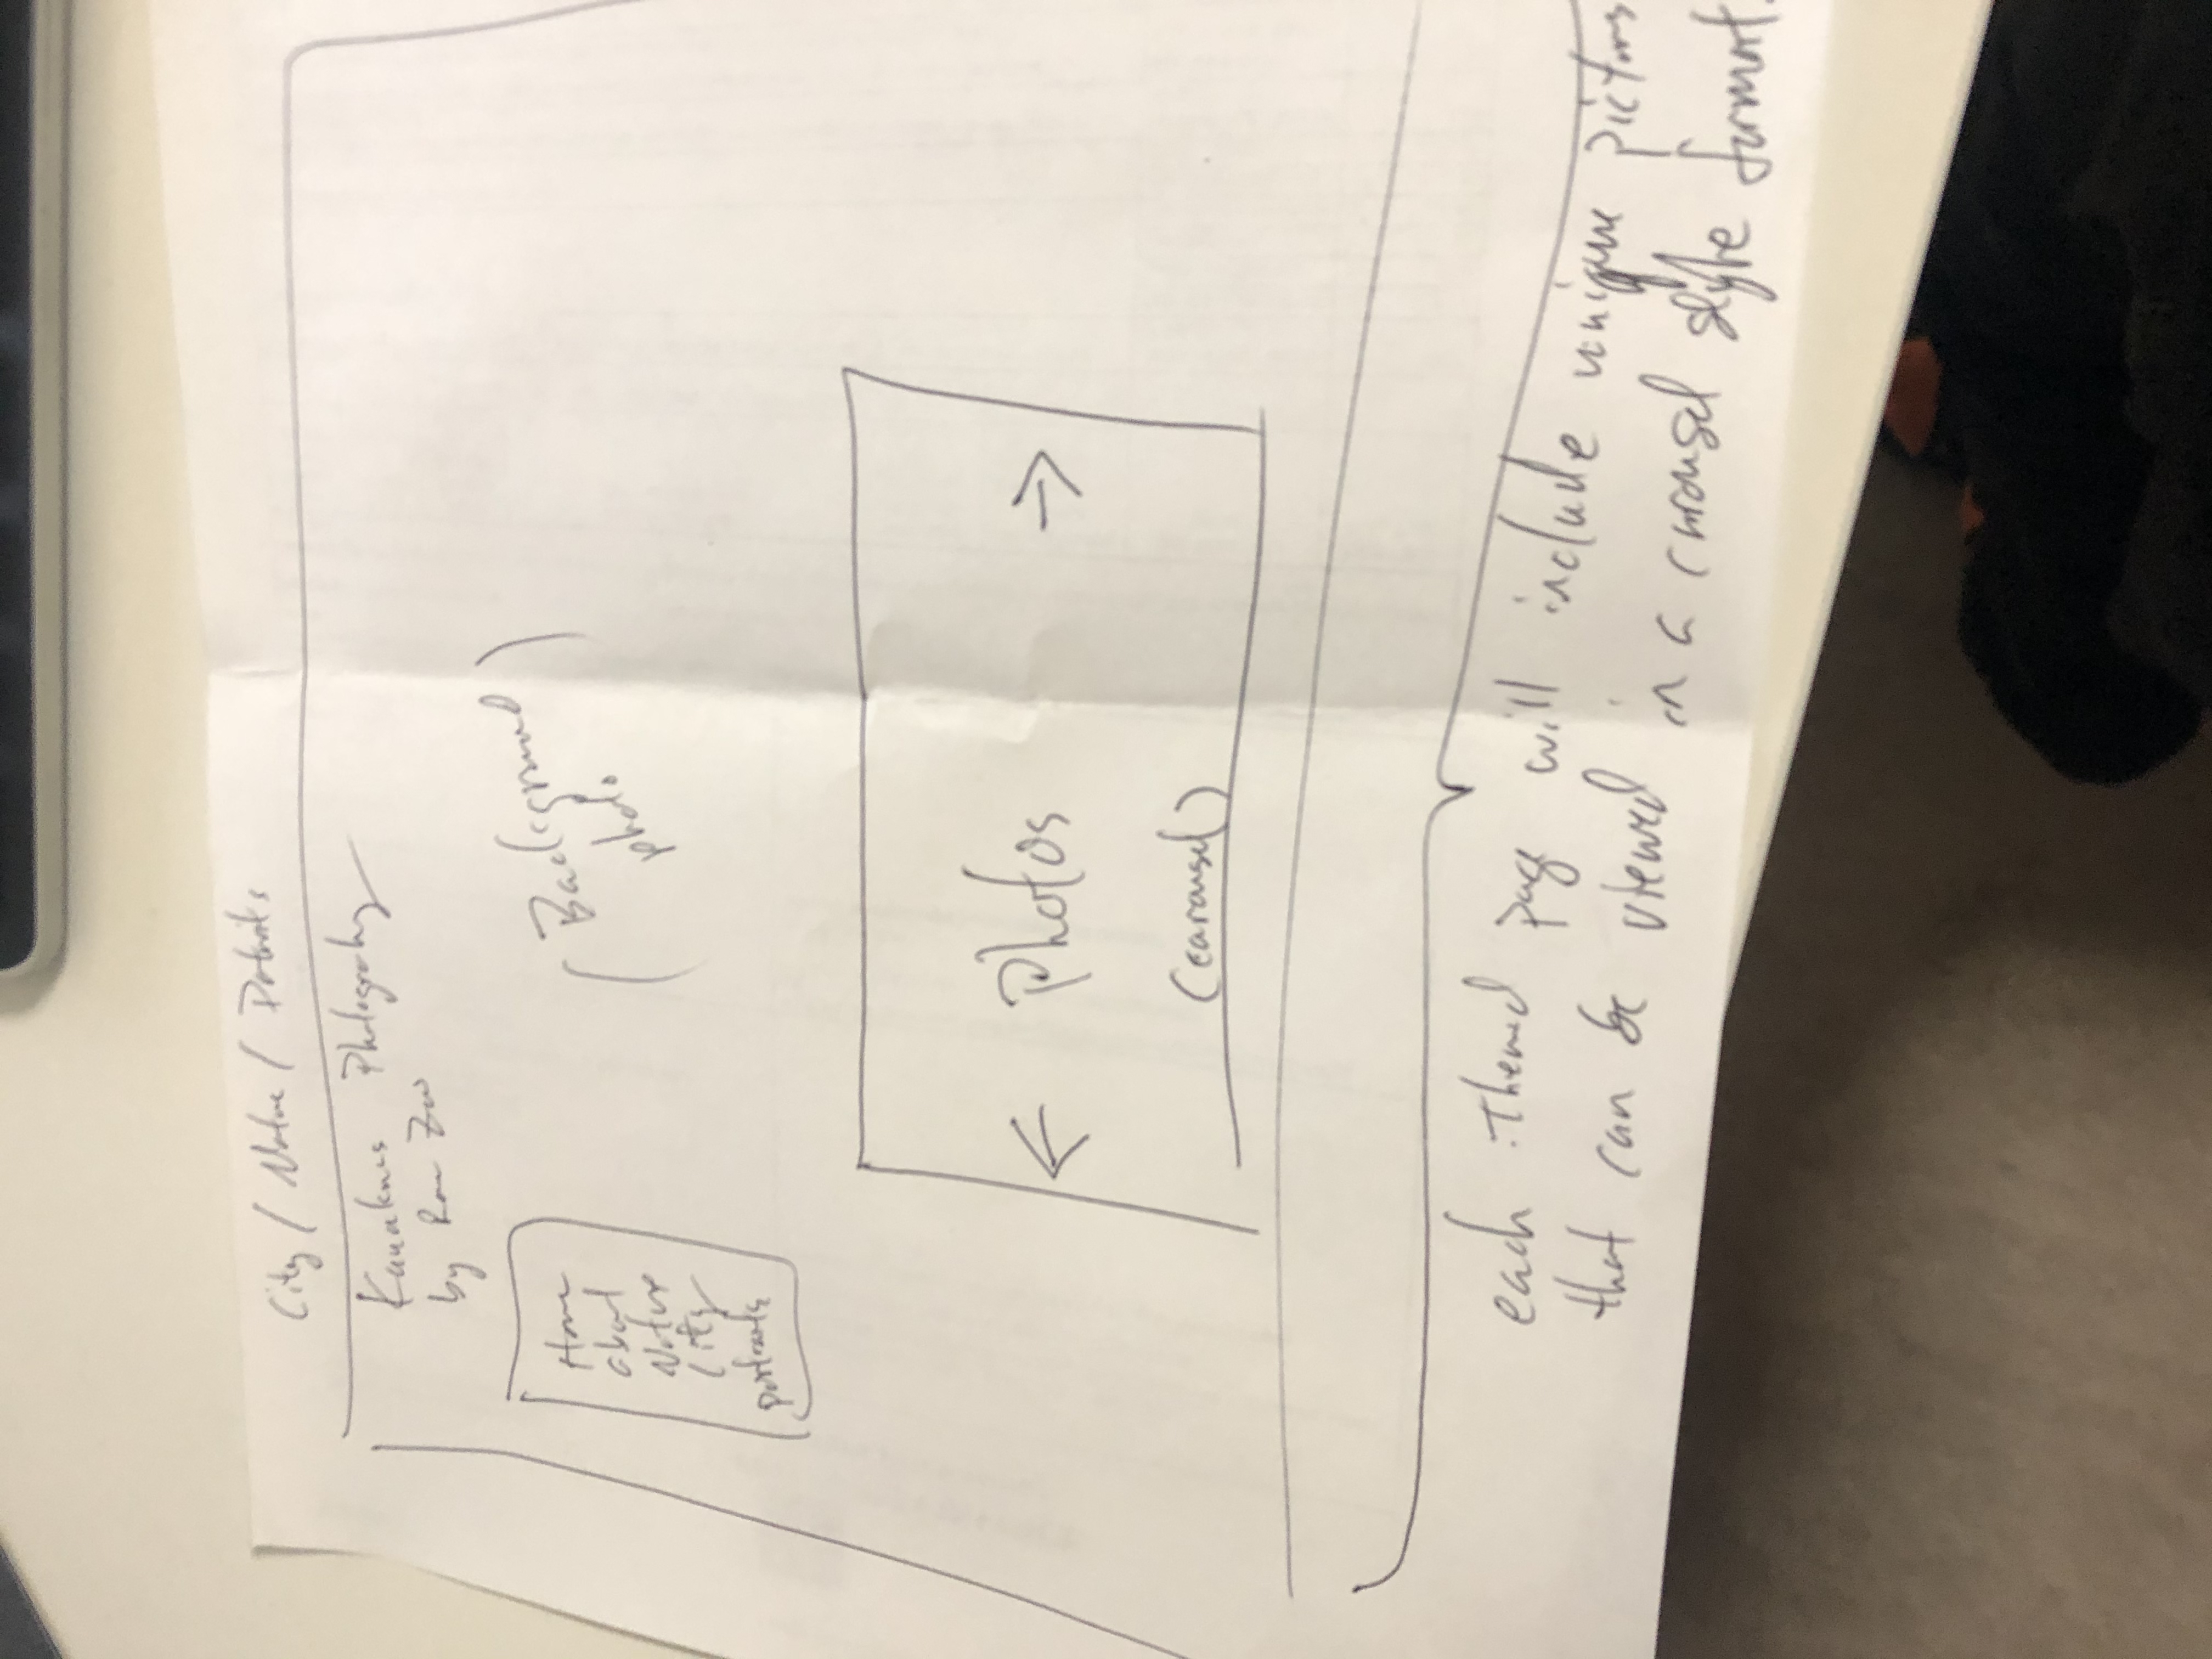 City / Nature / Portraits
Photography
by Zoo
Home
about
Nature
City
portraits
(Background
photo)
← Photos →
(carousel)
each Themed page will include unique pictures
that can be viewed in a carousel style format.